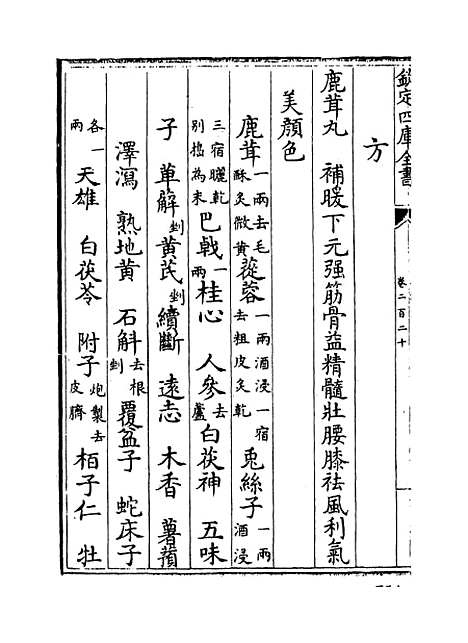 欽定四庫全書
卷二百二十
方
鹿茸丸 補暖下元强筋骨益精髓壯腰膝祛風利氣
美顔色
鹿茸一兩去毛酥炙微黄 蓯蓉一兩酒浸一宿去粗皮炙乾 兎絲子一兩酒浸
三宿曬乾别擣為末 巴戟一兩 桂心 人參去蘆 白茯神 五味
子 萆薢剉 黄芪剉 續斷 逺志 木香 薯蕷
澤瀉 熟地黄 石斛去根剉 覆盆子 蛇床子
各一兩 天雄 白茯苓 附子炮製去皮臍 栢子仁 牡